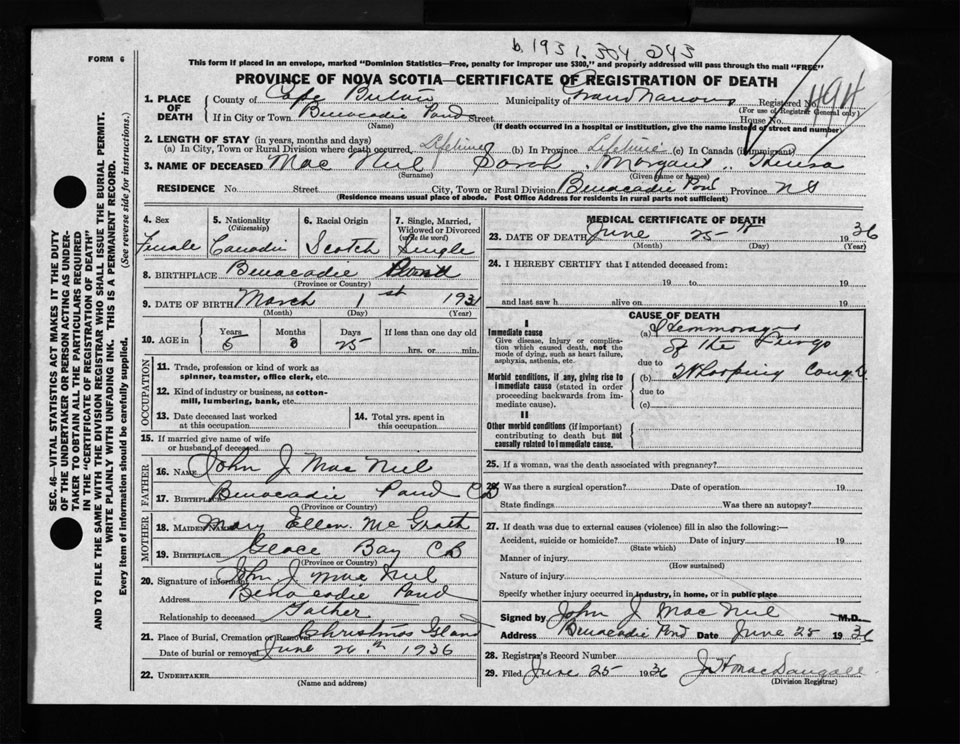 b. 1931. 304. 243
FORM 6
This form if placed in an envelope, marked "Dominion Statistics—Free, penalty for improper use $300," and properly addressed will pass through the mail "FREE"
PROVINCE OF NOVA SCOTIA—CERTIFICATE OF REGISTRATION OF DEATH
1. PLACE OF DEATH
County of Cape Breton Municipality of Grand Narrows Registered No. 494
(For use of Registrar General only)
If in City or Town Benacadie Pond Street House No.
(Name) (If death occurred in a hospital or institution, give the name instead of street and number)
2. LENGTH OF STAY (in years, months and days)
(a) In City, Town or Rural Division where death occurred Lifetime (b) In Province Lifetime (c) In Canada (if immigrant)
3. NAME OF DECEASED Mac Neil Sarah Margaret Theresa
(Surname) (Given name or names)
RESIDENCE No. Street City, Town or Rural Division Benacadie Pond Province N S
(Residence means usual place of abode. Post Office Address for residents in rural parts not sufficient)
4. Sex
Female
5. Nationality
(Citizenship)
Canadi
6. Racial Origin
Scotch
7. Single, Married, Widowed or Divorced
(write the word)
Single
8. BIRTHPLACE Benacadie
(Province or Country)
9. DATE OF BIRTH March 1st 1931
(Month) (Day) (Year)
10. AGE in
Years Months Days If less than one day old
5 3 25 hrs. or min.
OCCUPATION
11. Trade, profession or kind of work as spinner, teamster, office clerk, etc.
12. Kind of industry or business, as cotton-mill, lumbering, bank, etc.
13. Date deceased last worked at this occupation
14. Total yrs. spent in this occupation
15. If married give name of wife or husband of deceased
FATHER
16. NAME John J Mac Neil
17. BIRTHPLACE Benacadie Pond CB
(Province or Country)
MOTHER
18. MAIDEN NAME Mary Ellen Mc Grath
19. BIRTHPLACE Glace Bay CB
(Province or Country)
20. Signature of informant John J Mac Neil
Address Benacadie Pond
Relationship to deceased Father
21. Place of Burial, Cremation or Removal Christmas Island
Date of burial or removal June 26th 1936
22. UNDERTAKER
(Name and address)
MEDICAL CERTIFICATE OF DEATH
23. DATE OF DEATH June 25th 1936
(Month) (Day) (Year)
24. I HEREBY CERTIFY that I attended deceased from:
19 to 19
and last saw h alive on 19
CAUSE OF DEATH
I
Immediate cause
Give disease, injury or complication which caused death, not the mode of dying, such as heart failure, asphyxia, asthenia, etc.
Morbid conditions, if any, giving rise to immediate cause (stated in order proceeding backwards from immediate cause).
II
Other morbid conditions (if important) contributing to death but not causally related to immediate cause.
(a) Hemmorage
of the lungs
due to
(b) Whooping Cough
due to
(c)
25. If a woman, was the death associated with pregnancy?
26. Was there a surgical operation? Date of operation 19
State findings Was there an autopsy?
27. If death was due to external causes (violence) fill in also the following:—
Accident, suicide or homicide? Date of injury 19
(State which)
Manner of injury
(How sustained)
Nature of injury
Specify whether injury occurred in industry, in home, or in public place
Signed by John J Mac Neil M.D.
Address Benacadie Pond Date June 25 1936
28. Registrar's Record Number
29. Filed June 25 1936 J H MacDougall
(Division Registrar)
SEC. 46—VITAL STATISTICS ACT MAKES IT THE DUTY
OF THE UNDERTAKER OR PERSON ACTING AS UNDER-
TAKER TO OBTAIN ALL THE PARTICULARS REQUIRED
IN THE "CERTIFICATE OF REGISTRATION OF DEATH"
AND TO FILE THE SAME WITH THE DIVISION REGISTRAR WHO SHALL ISSUE THE BURIAL PERMIT.
WRITE PLAINLY WITH UNFADING INK. THIS IS A PERMANENT RECORD.
Every item of information should be carefully supplied. (See reverse side for instructions.)